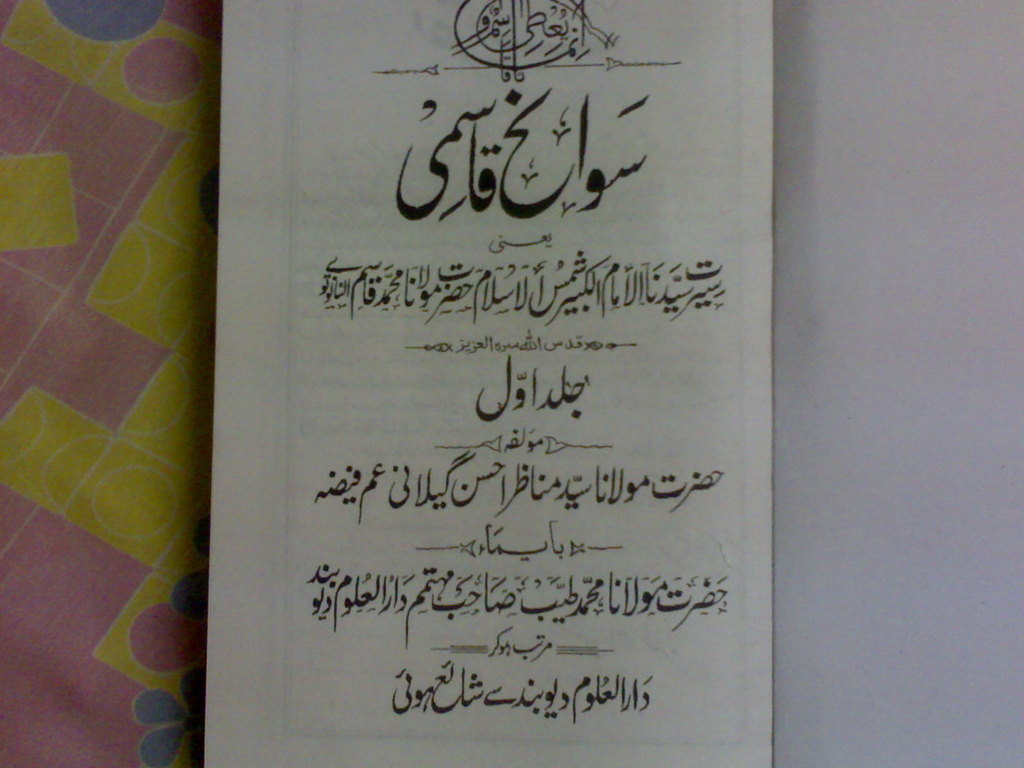 انما یعطی
سوانح قاسمی
یعنی
سیرت سیدنا الامام الکبیر شمس الاسلام حضرت مولانا محمد قاسم النانوتوی
قدس اللہ سرہ العزیز
جلد اوّل
مؤلفہ
حضرت مولانا سیّد مناظر احسن گیلانی عم فیضہ
بایماء
حضرت مولانا محمد طیّب صاحب مہتمم دارالعلوم دیوبند
مرتب ہوکر
دارالعلوم دیوبند سے شائع ہوئی